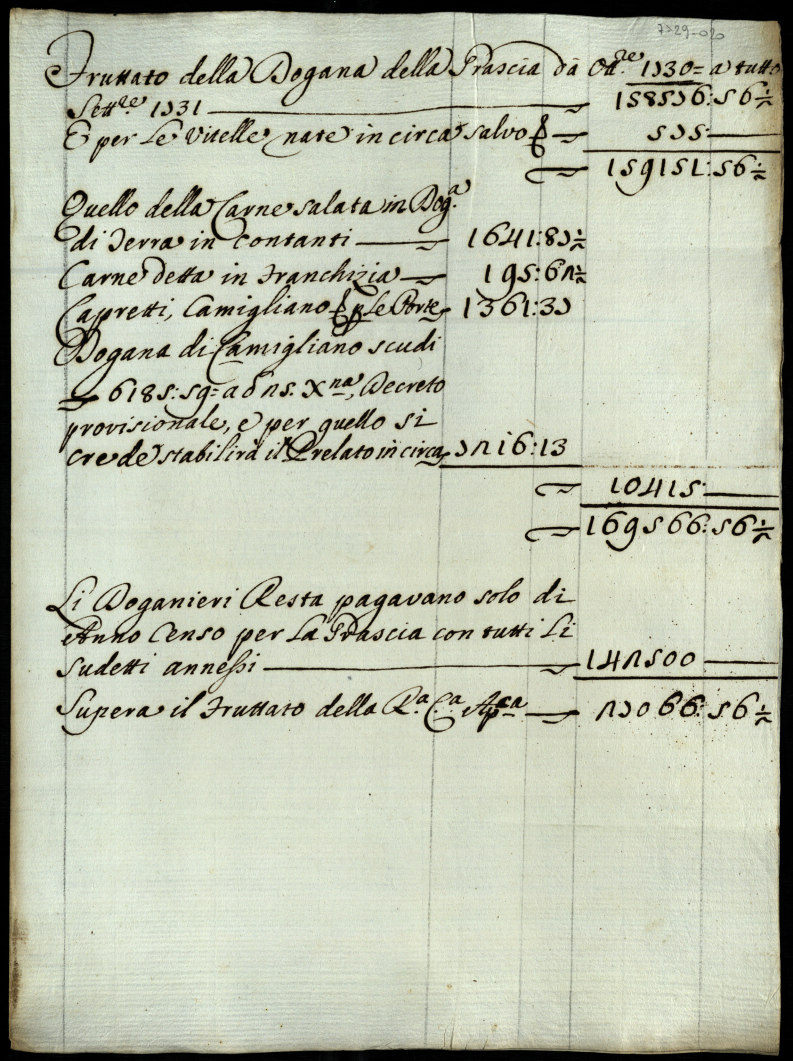 Fruttato della Dogana della Grascia da Ott.re 1730= a tutto
Sett.re 1731 158576:56½
E per le Vitelle nate in circa salvo 575
159151:56½
Quello della Carne salata in Dog.a
di Terra in contanti 1641:87½
Carne detta in Franchizia 195:62½
Capretti, Camigliano per le Porte 1361:37
Dogana di Camigliano scudi
6185:59= a d 25. Xna, Decreto
provisionale, e per quello si
crede stabilirà il Prelato in circa 7216:13
10415
169566:56½
Li Doganieri Resta pagavano solo di
Anno Censo per la Grascia con tutti li
sudetti annessi 142500
Supera il Fruttato della R.a C.a Ap.ca 27066:56½